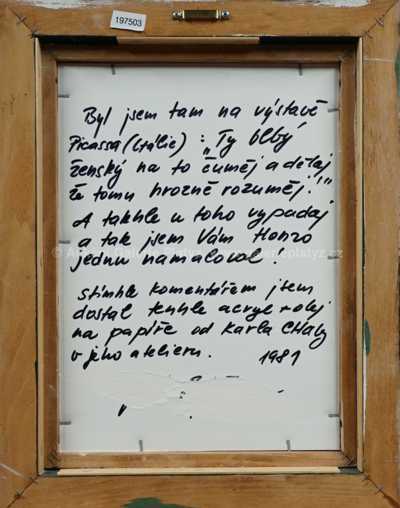 197503
Byl jsem tam na výstavě
Picassa (Itálie) : „Ty blbý
ženský na to čuměj a dělaj
že tomu hrozně rozuměj!"
A takhle u toho vypadaj
a tak jsem Vám Honzo
jednu namaloval!
stímhle komentářem jsem
dostal tenhle acryl+olej
na papíře od Karla Chaby
v jeho atelieru. 1981